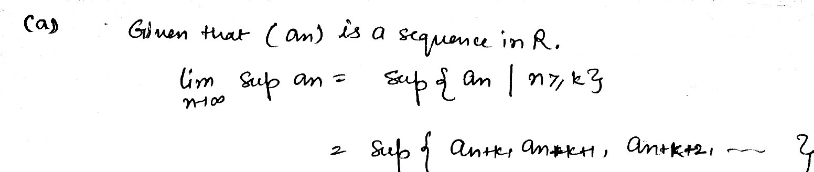 (a) Given that (an) is a sequence in R.
lim sup an = sup { an | n ≥ k }
n→∞
= sup { an+k, an+k+1, an+k+2, — }